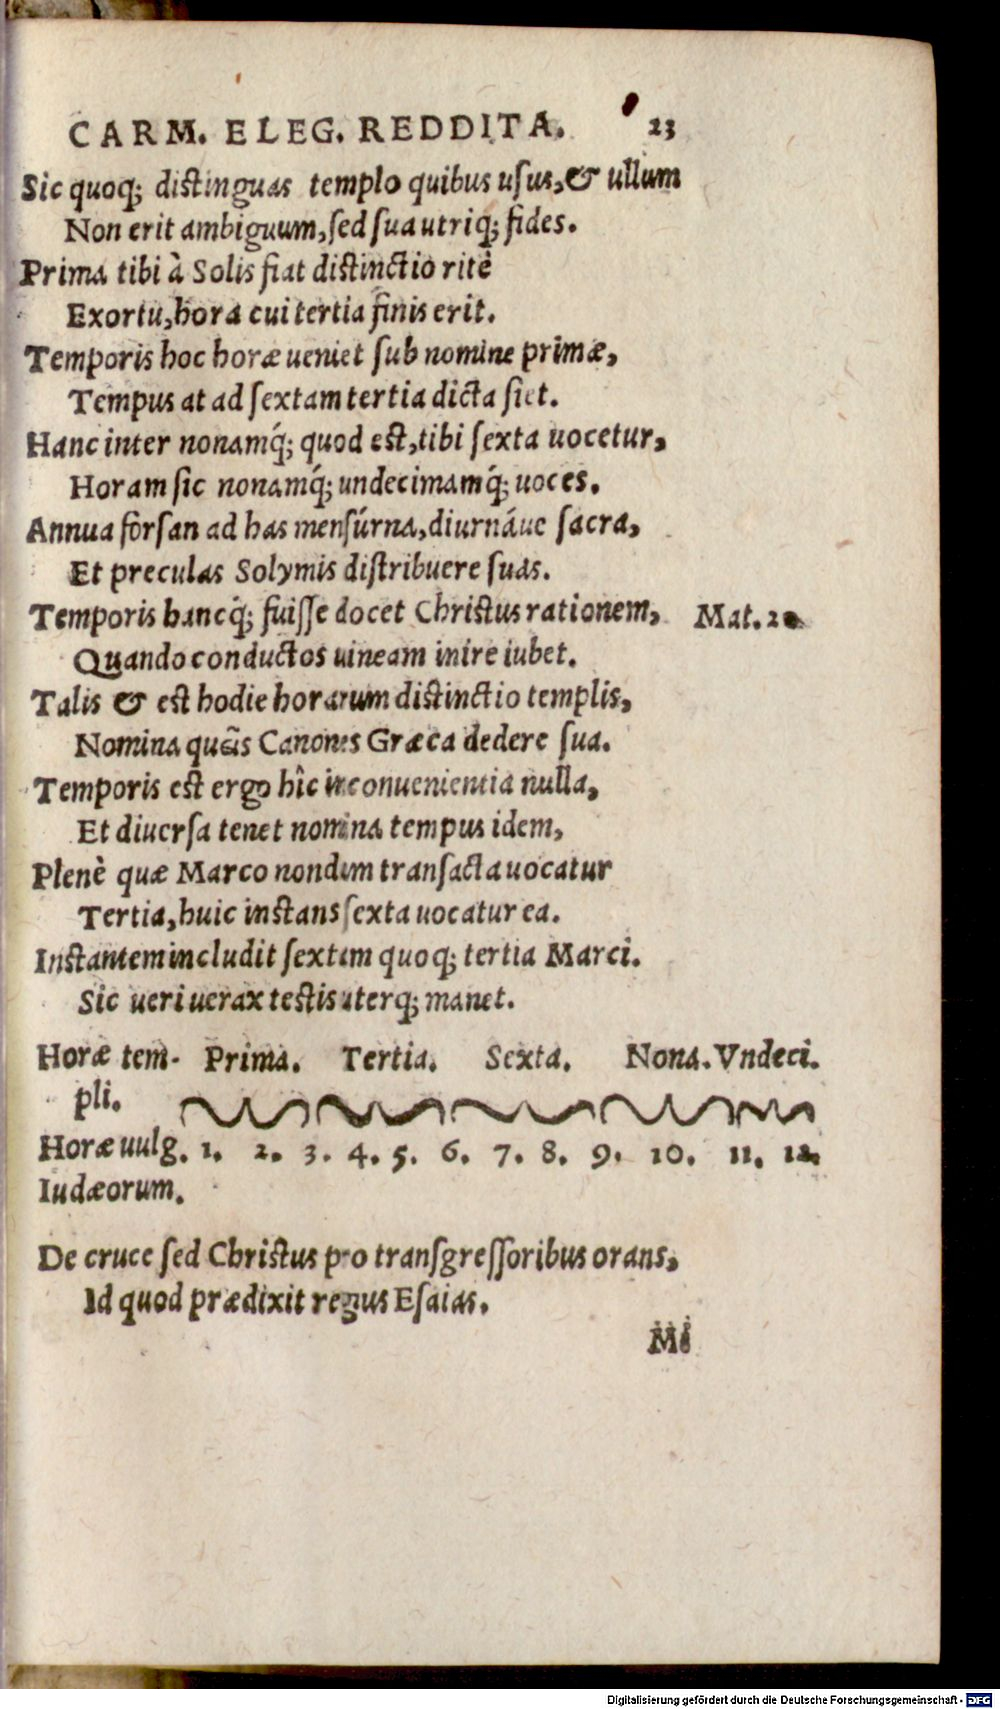 CARM. ELEG. REDDITA. 23
Sic quoq; distinguas templo quibus usus, & ullum
Non erit ambiguum, sed sua utriq; fides.
Prima tibi à Solis fiat distinctio ritè
Exortu, hora cui tertia finis erit.
Temporis hoc horæ ueniet sub nomine primæ,
Tempus at ad sextam tertia dicta siet.
Hanc inter nonamq́; quod est, tibi sexta uocetur,
Horam sic nonamq́; undecimamq́; uoces.
Annua forsan ad has mensúrna, diurnáue sacra,
Et preculas Solymis distribuere suas.
Temporis hancq́; fuisse docet Christus rationem, Mat. 20
Quando conductos uineam inire iubet.
Talis & est hodie horarum distinctio templis,
Nomina queîs Canones Græca dedere sua.
Temporis est ergo hîc inconuenientia nulla,
Et diuersa tenet nomina tempus idem,
Plenè quæ Marco nondum transacta uocatur
Tertia, huic instans sexta uocatur ea.
Instantem includit sextam quoq; tertia Marci.
Sic ueri uerax testis uterq; manet.
Horæ tem- Prima. Tertia. Sexta. Nona. Vndeci.
pli.
Horæ uulg. 1. 2. 3. 4. 5. 6. 7. 8. 9. 10. 11. 12.
Iudæorum.
De cruce sed Christus pro transgressoribus orans,
Id quod prædixit regus Esaias.
Mi
Digitalisierung gefördert durch die Deutsche Forschungsgemeinschaft - DFG